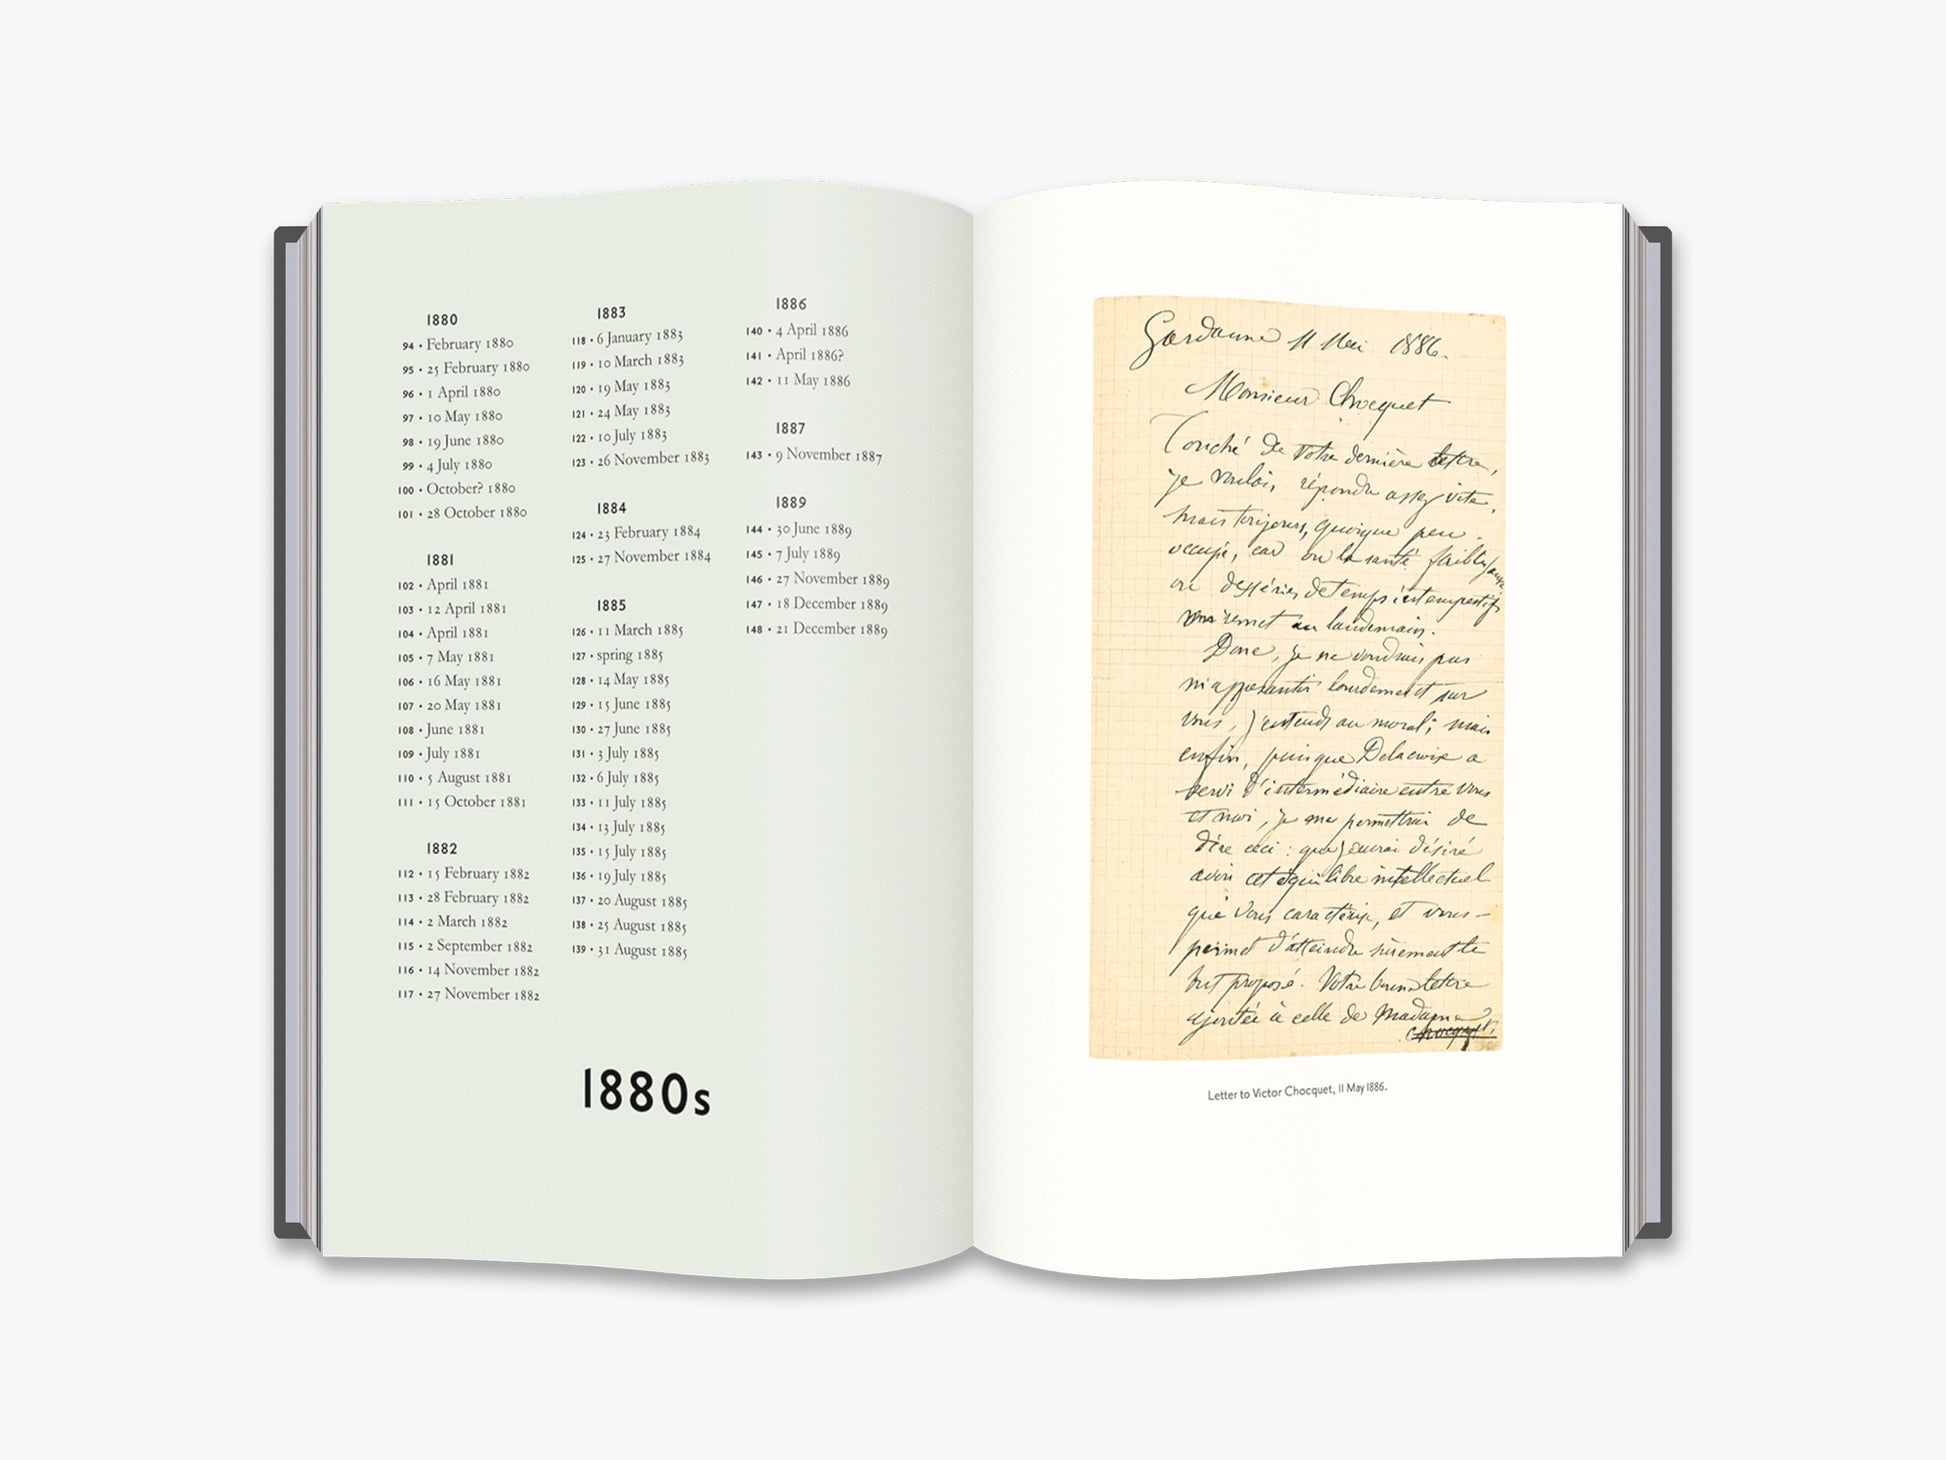 1880
94 • February 1880
95 • 25 February 1880
96 • 1 April 1880
97 • 10 May 1880
98 • 19 June 1880
99 • 4 July 1880
100 • October? 1880
101 • 28 October 1880
1881
102 • April 1881
103 • 12 April 1881
104 • April 1881
105 • 7 May 1881
106 • 16 May 1881
107 • 20 May 1881
108 • June 1881
109 • July 1881
110 • 5 August 1881
111 • 15 October 1881
1882
112 • 15 February 1882
113 • 28 February 1882
114 • 2 March 1882
115 • 2 September 1882
116 • 14 November 1882
117 • 27 November 1882
1883
118 • 6 January 1883
119 • 10 March 1883
120 • 19 May 1883
121 • 24 May 1883
122 • 10 July 1883
123 • 26 November 1883
1884
124 • 23 February 1884
125 • 27 November 1884
1885
126 • 11 March 1885
127 • spring 1885
128 • 14 May 1885
129 • 15 June 1885
130 • 27 June 1885
131 • 3 July 1885
132 • 6 July 1885
133 • 11 July 1885
134 • 13 July 1885
135 • 15 July 1885
136 • 19 July 1885
137 • 20 August 1885
138 • 25 August 1885
139 • 31 August 1885
1886
140 • 4 April 1886
141 • April 1886?
142 • 11 May 1886
1887
143 • 9 November 1887
1889
144 • 30 June 1889
145 • 7 July 1889
146 • 27 November 1889
147 • 18 December 1889
148 • 21 December 1889
1880s
Gardanne 11 Mai 1886.
Monsieur Chocquet
Touché de votre dernière lettre,
je voulais répondre assez vite,
mais toujours, quoique peu
occupé, car ou la santé faible
ou des séries de temps intempestifs
remet au lendemain.
Donc, je ne voudrais pas
m'appesantir lourdement sur
vous, j'entends au moral; mais
enfin, puisque Delacroix a
servi d'intermédiaire entre vous
et moi, je me permettrai de
dire ceci : que j'aurai désiré
avoir cet équilibre intellectuel
que vous caractérise, et vous
permet d'atteindre sûrement le
but proposé. Votre bonne lettre
ajoutée à celle de Madame
Chocquet,
Letter to Victor Chocquet, 11 May 1886.